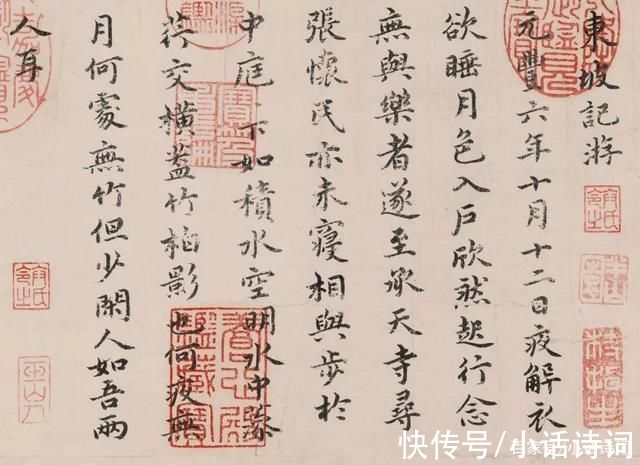 東坡記游
元豐六年十月十二日夜解衣
欲睡月色入戶欣然起行念
無與樂者遂至承天寺尋
張懷民亦未寢相與步於
中庭下如積水空明水中藻
荇交橫蓋竹柏影也何夜無
月何處無竹但少閑人如吾兩
人耳
快传号/小话诗词